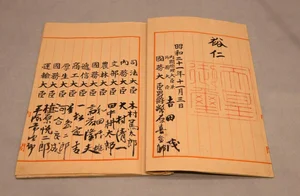 裕仁
昭和二十一年十一月三日
内閣総理大臣兼
外務大臣 吉田茂
国務大臣 男爵 幣原喜重郎
司法大臣 木村篤太郎
内務大臣 大村清一
文部大臣 田中耕太郎
農林大臣 和田博雄
国務大臣 斎藤隆夫
逓信大臣 一松定吉
商工大臣 星島二郎
厚生大臣 河合良成
国務大臣 植原悦二郎
運輸大臣 平塚常次郎